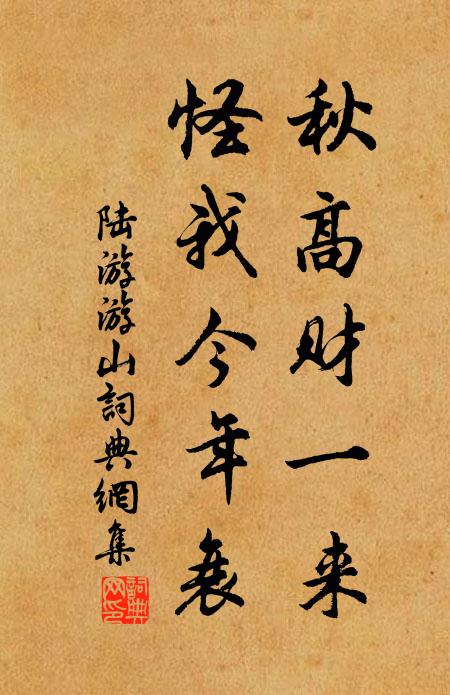 秋高财一来
怪我今年衰
陆游游山詞典網集
詞典网印